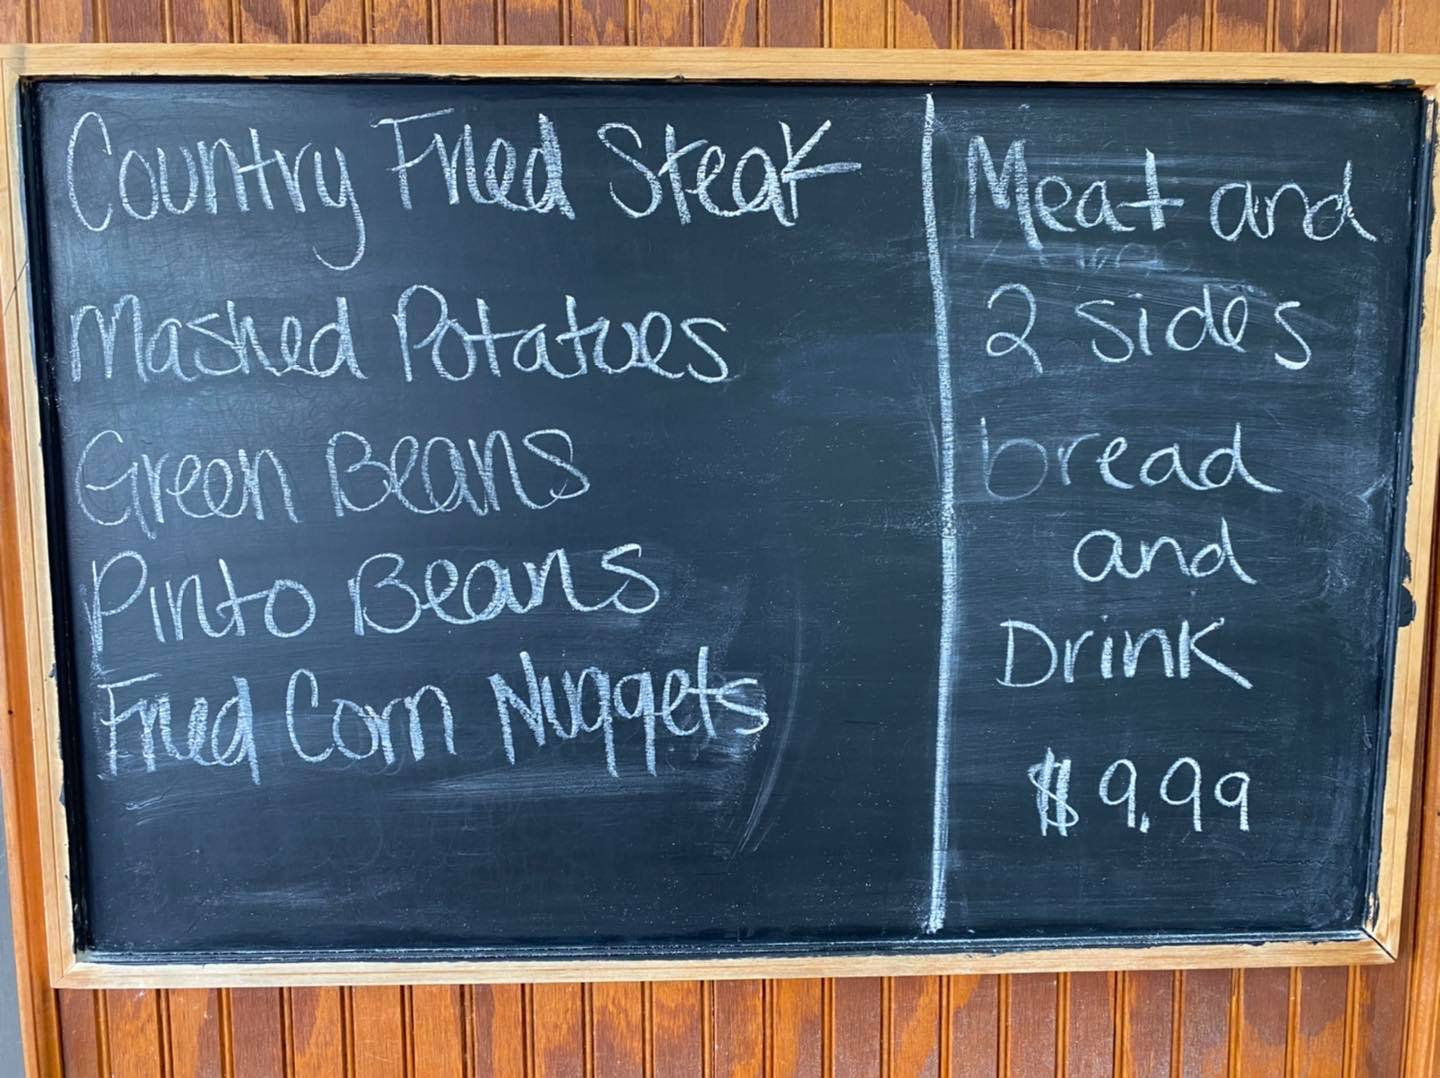 Country Fried Steak
Mashed Potatoes
Green Beans
Pinto Beans
Fried Corn Nuggets
Meat and
2 sides
bread
and
Drink
$9.99